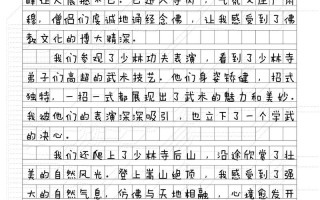 穆。僧侣们虔诚地诵经念佛，让我感受到了佛
教文化的博大精深。
我们参观了少林功夫表演，看到了少林寺
弟子们高超的武术技艺。他们身姿矫健，招式
独特，一招一式都展现出了武术的魅力和美妙。
我被他们的表演深深吸引，也立下了一个学武
的决心。
我们还爬上了少林寺后山，沿途欣赏了壮
美的自然风光。登上嵩山绝顶，我感受到了强
大的自然气息，仿佛与天地相融，心境愈发开